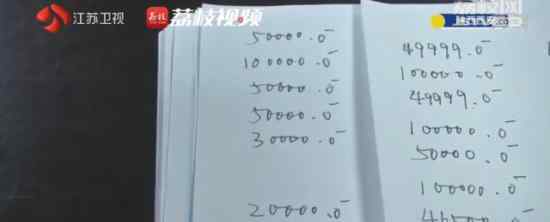 江苏卫视
荔枝视频
荔枝网
陕西西安
50000.0
100000.0
50000.0
50000.0
30000.0
20000.0
49999.0
100000.0
49999.0
100000.0
50000.0
100000.0